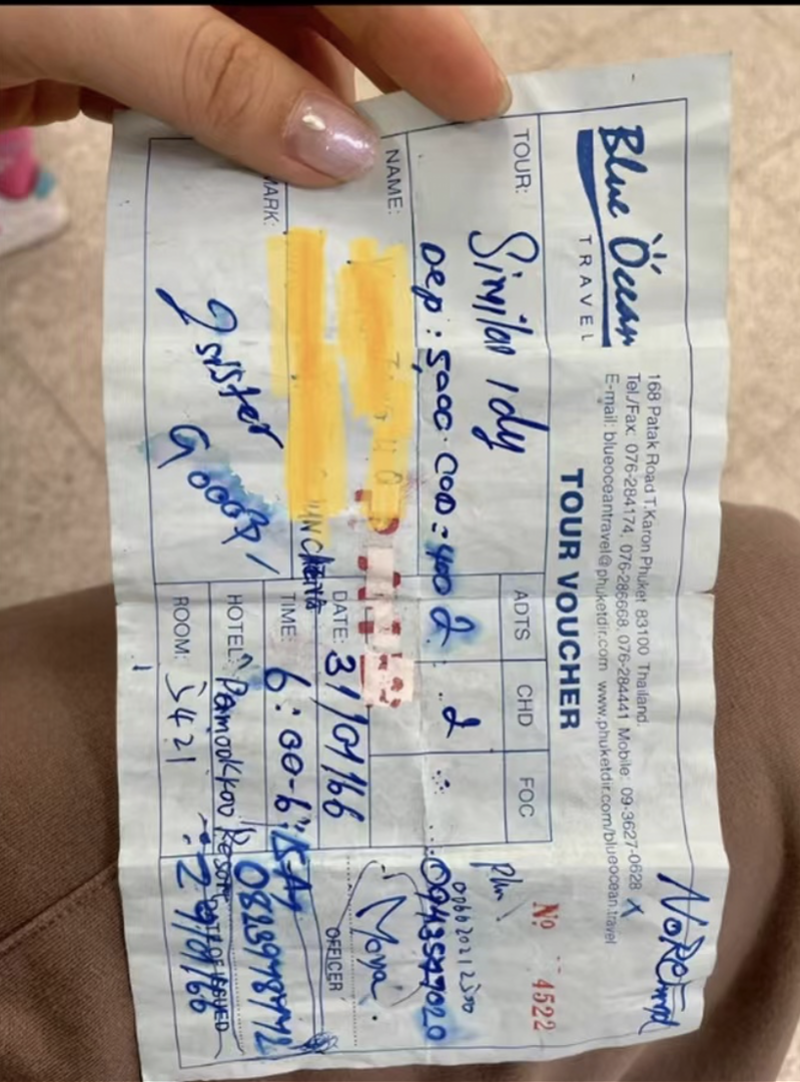 Blue Ocean
TRAVEL
168 Patak Road T.Karon Phuket 83100 Thailand.
Tel./Fax: 076-284174, 076-286668, 076-284441 Mobile: 09-3627-0628
E-mail: blueoceantravel@phuketdir.com www.phuketdir.com/blueocean.travel
TOUR VOUCHER
Nº 4522
TOUR: Similan 1dy
Dep: 5000. COD = 400
ADTS CHD FOC
2 2
NAME:
DATE: 31/01/66
TIME: 6:00-6:15
HOTEL: Resort
ROOM: 5421
2 sister
Moya
OFFICER
DATE OF ISSUED
29/01/66